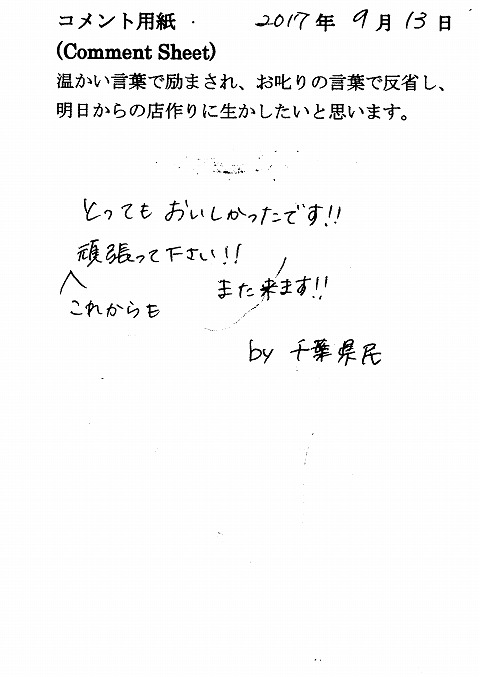 コメント用紙 2017年 9月 13日
(Comment Sheet)
温かい言葉で励まされ、お叱りの言葉で反省し、
明日からの店作りに生かしたいと思います。
とっても おいしかったです!!
頑張って下さい!!
これからも
また来ます!!
by 千葉県民